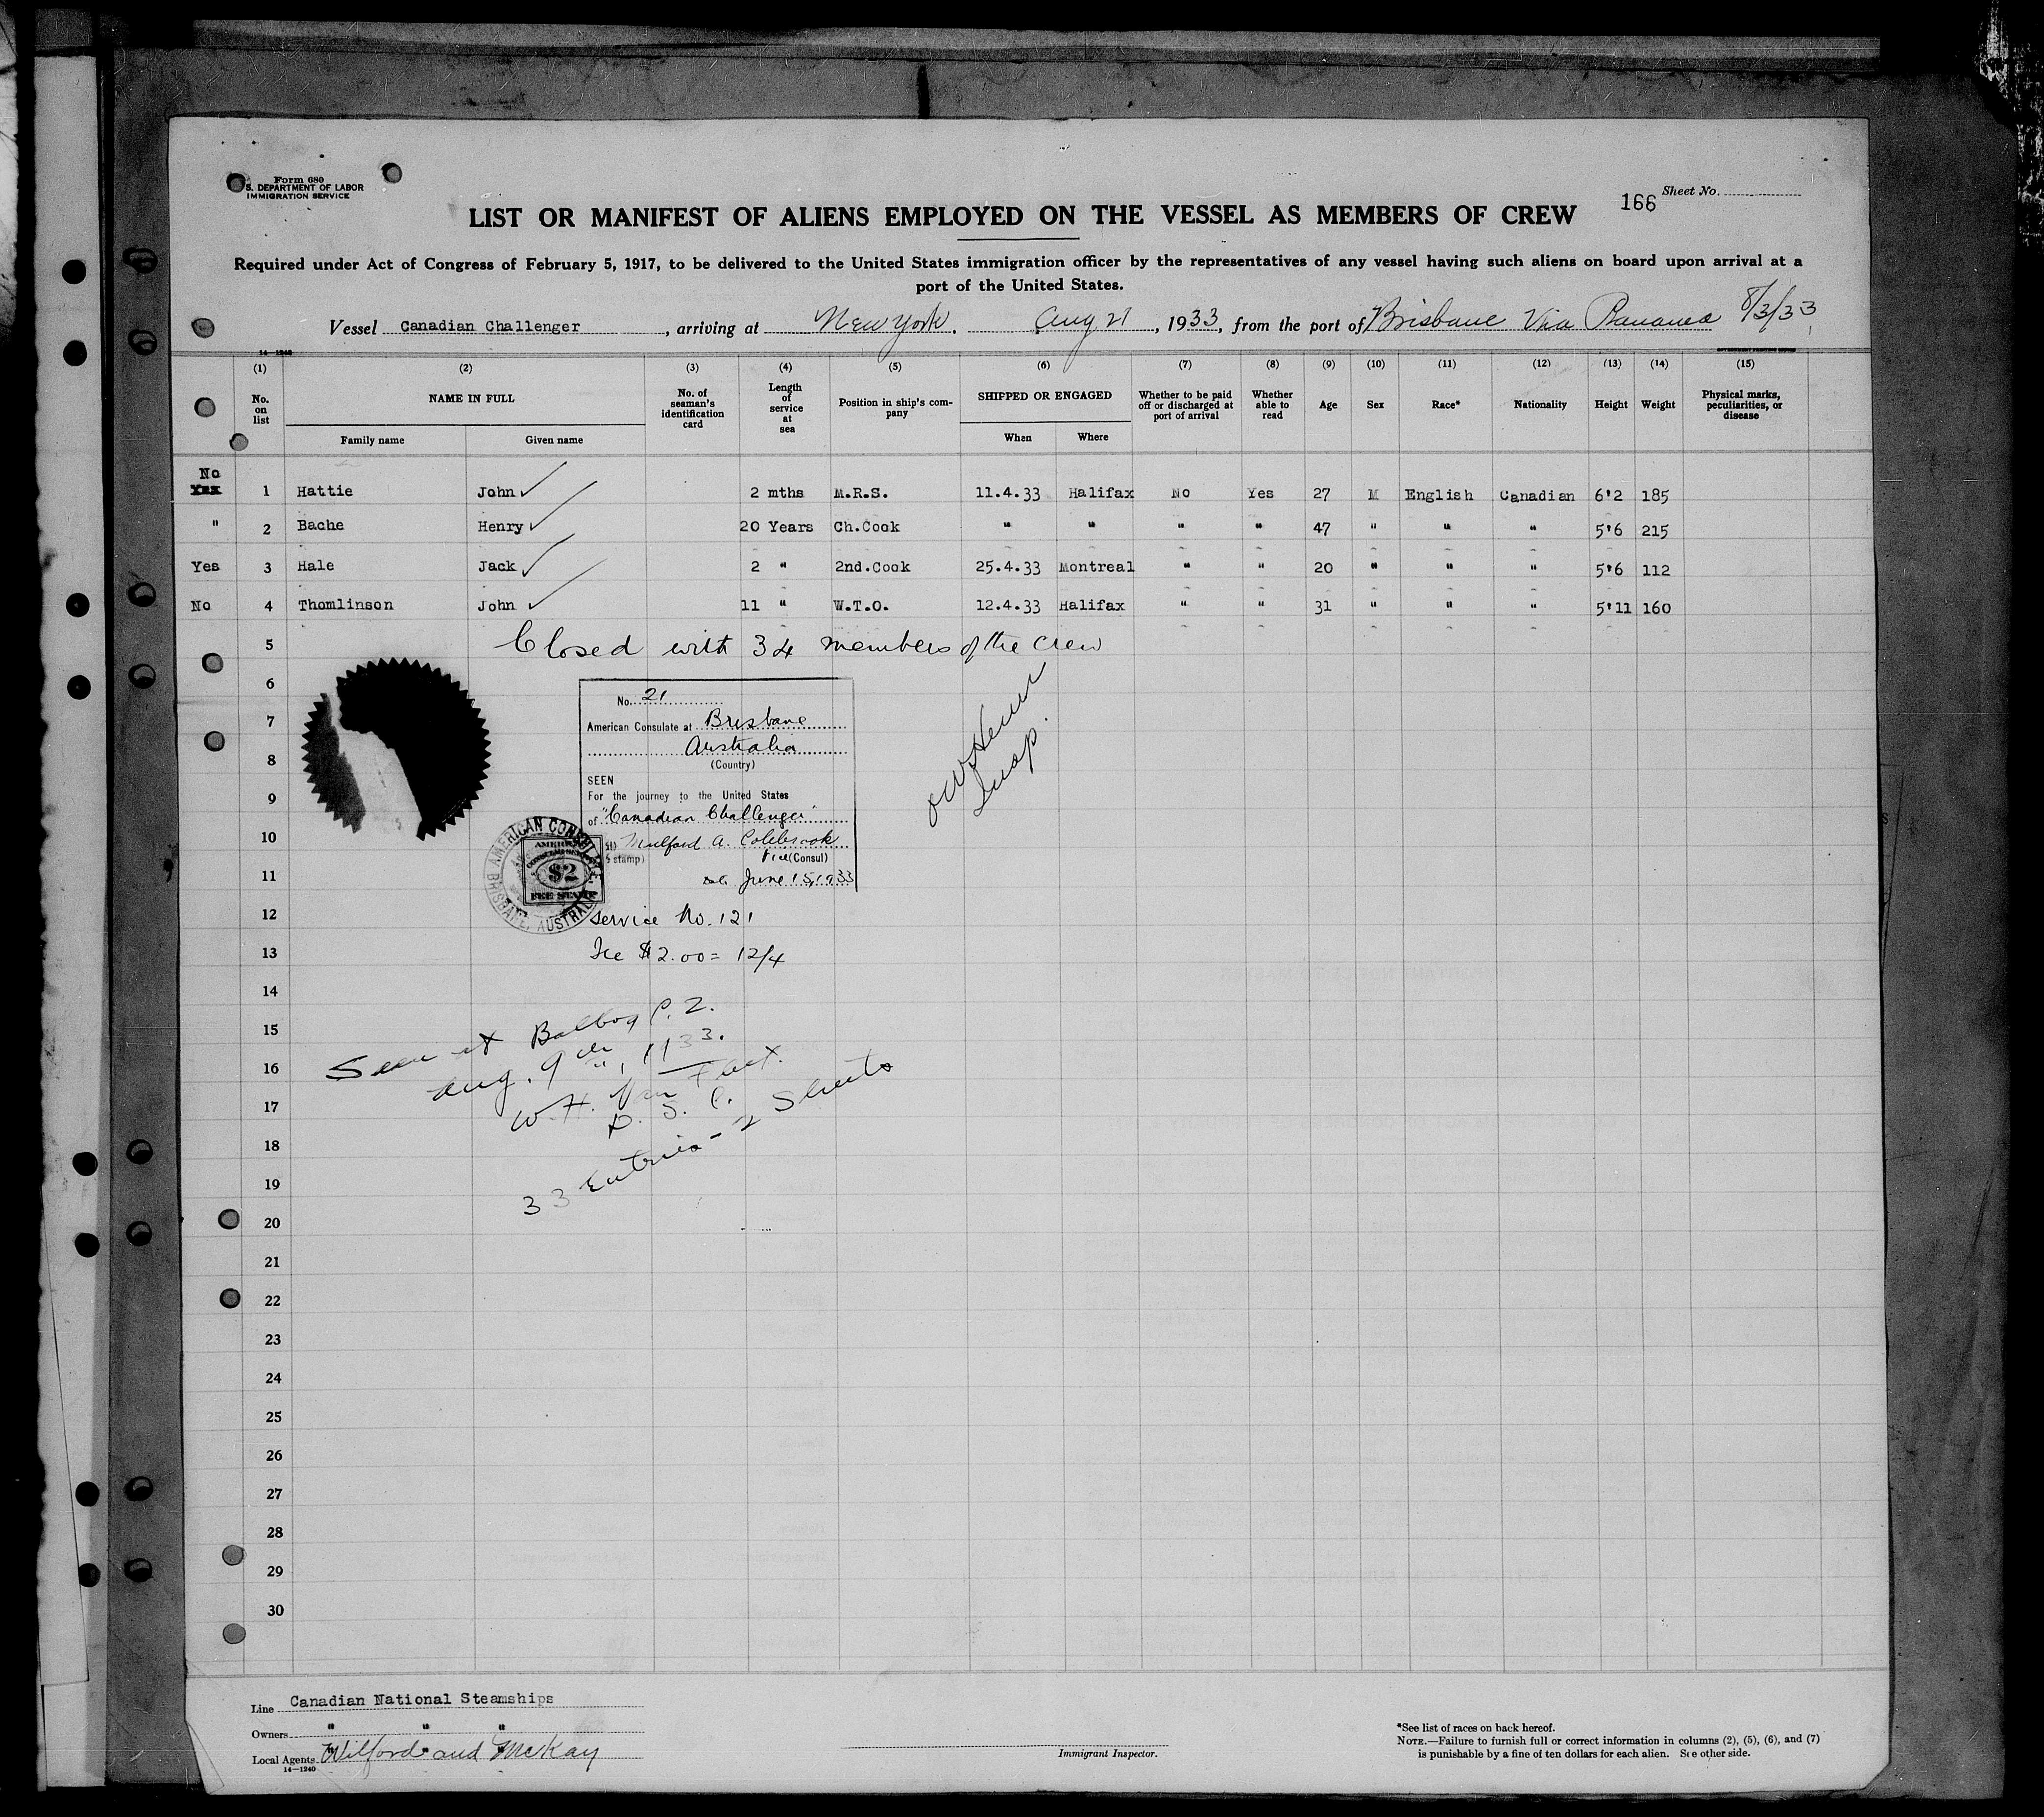 Form 680
S. DEPARTMENT OF LABOR
IMMIGRATION SERVICE
166 Sheet No.
LIST OR MANIFEST OF ALIENS EMPLOYED ON THE VESSEL AS MEMBERS OF CREW
Required under Act of Congress of February 5, 1917, to be delivered to the United States immigration officer by the representatives of any vessel having such aliens on board upon arrival at a
port of the United States.
Vessel Canadian Challenger, arriving at New York, Aug 21, 1933, from the port of Brisbane Via Panama 8/3/33
14—1240
(1) (2) (3) (4) (5) (6) (7) (8) (9) (10) (11) (12) (13) (14) (15)
No. on list
NAME IN FULL
Family name Given name
No. of seaman's identification card
Length of service at sea
Position in ship's company
SHIPPED OR ENGAGED
When Where
Whether to be paid off or discharged at port of arrival
Whether able to read
Age Sex Race* Nationality Height Weight
Physical marks, peculiarities, or disease
No
Yes 1 Hattie John 2 mths M.R.S. 11.4.33 Halifax No Yes 27 M English Canadian 6'2 185
" 2 Bache Henry 20 Years Ch.Cook " " " " 47 " " " 5'6 215
Yes 3 Hale Jack 2 " 2nd.Cook 25.4.33 Montreal " " 20 " " " 5'6 112
No 4 Thomlinson John 11 " W.T.O. 12.4.33 Halifax " " 31 " " " 5'11 160
5 Closed with 34 members of the crew
6
No. 21
7
American Consulate at Brisbane
Australia
8
(Country)
SEEN
9
For the journey to the United States
of "Canadian Challenger"
10
Mulford A. Colebrook
stamp) Vice (Consul)
11
June 15, 1933
AMERICAN CONSULATE
BRISBANE, AUSTRALIA
$2
FEE STAMP
12
Service No. 121
13
Fee $2.00 = 12/4
Insp.
14
15
Seen at Balboa C.Z.
Aug. 9th, 1933.
16
W.H. Van Fleet.
17
18
33 Entries - 2 Sheets
19
20
21
22
23
24
25
26
27
28
29
30
Line Canadian National Steamships
Owners " " "
Local Agents Wilford and McKay
14—1240
Immigrant Inspector.
*See list of races on back hereof.
NOTE.—Failure to furnish full or correct information in columns (2), (5), (6), and (7)
is punishable by a fine of ten dollars for each alien. See other side.